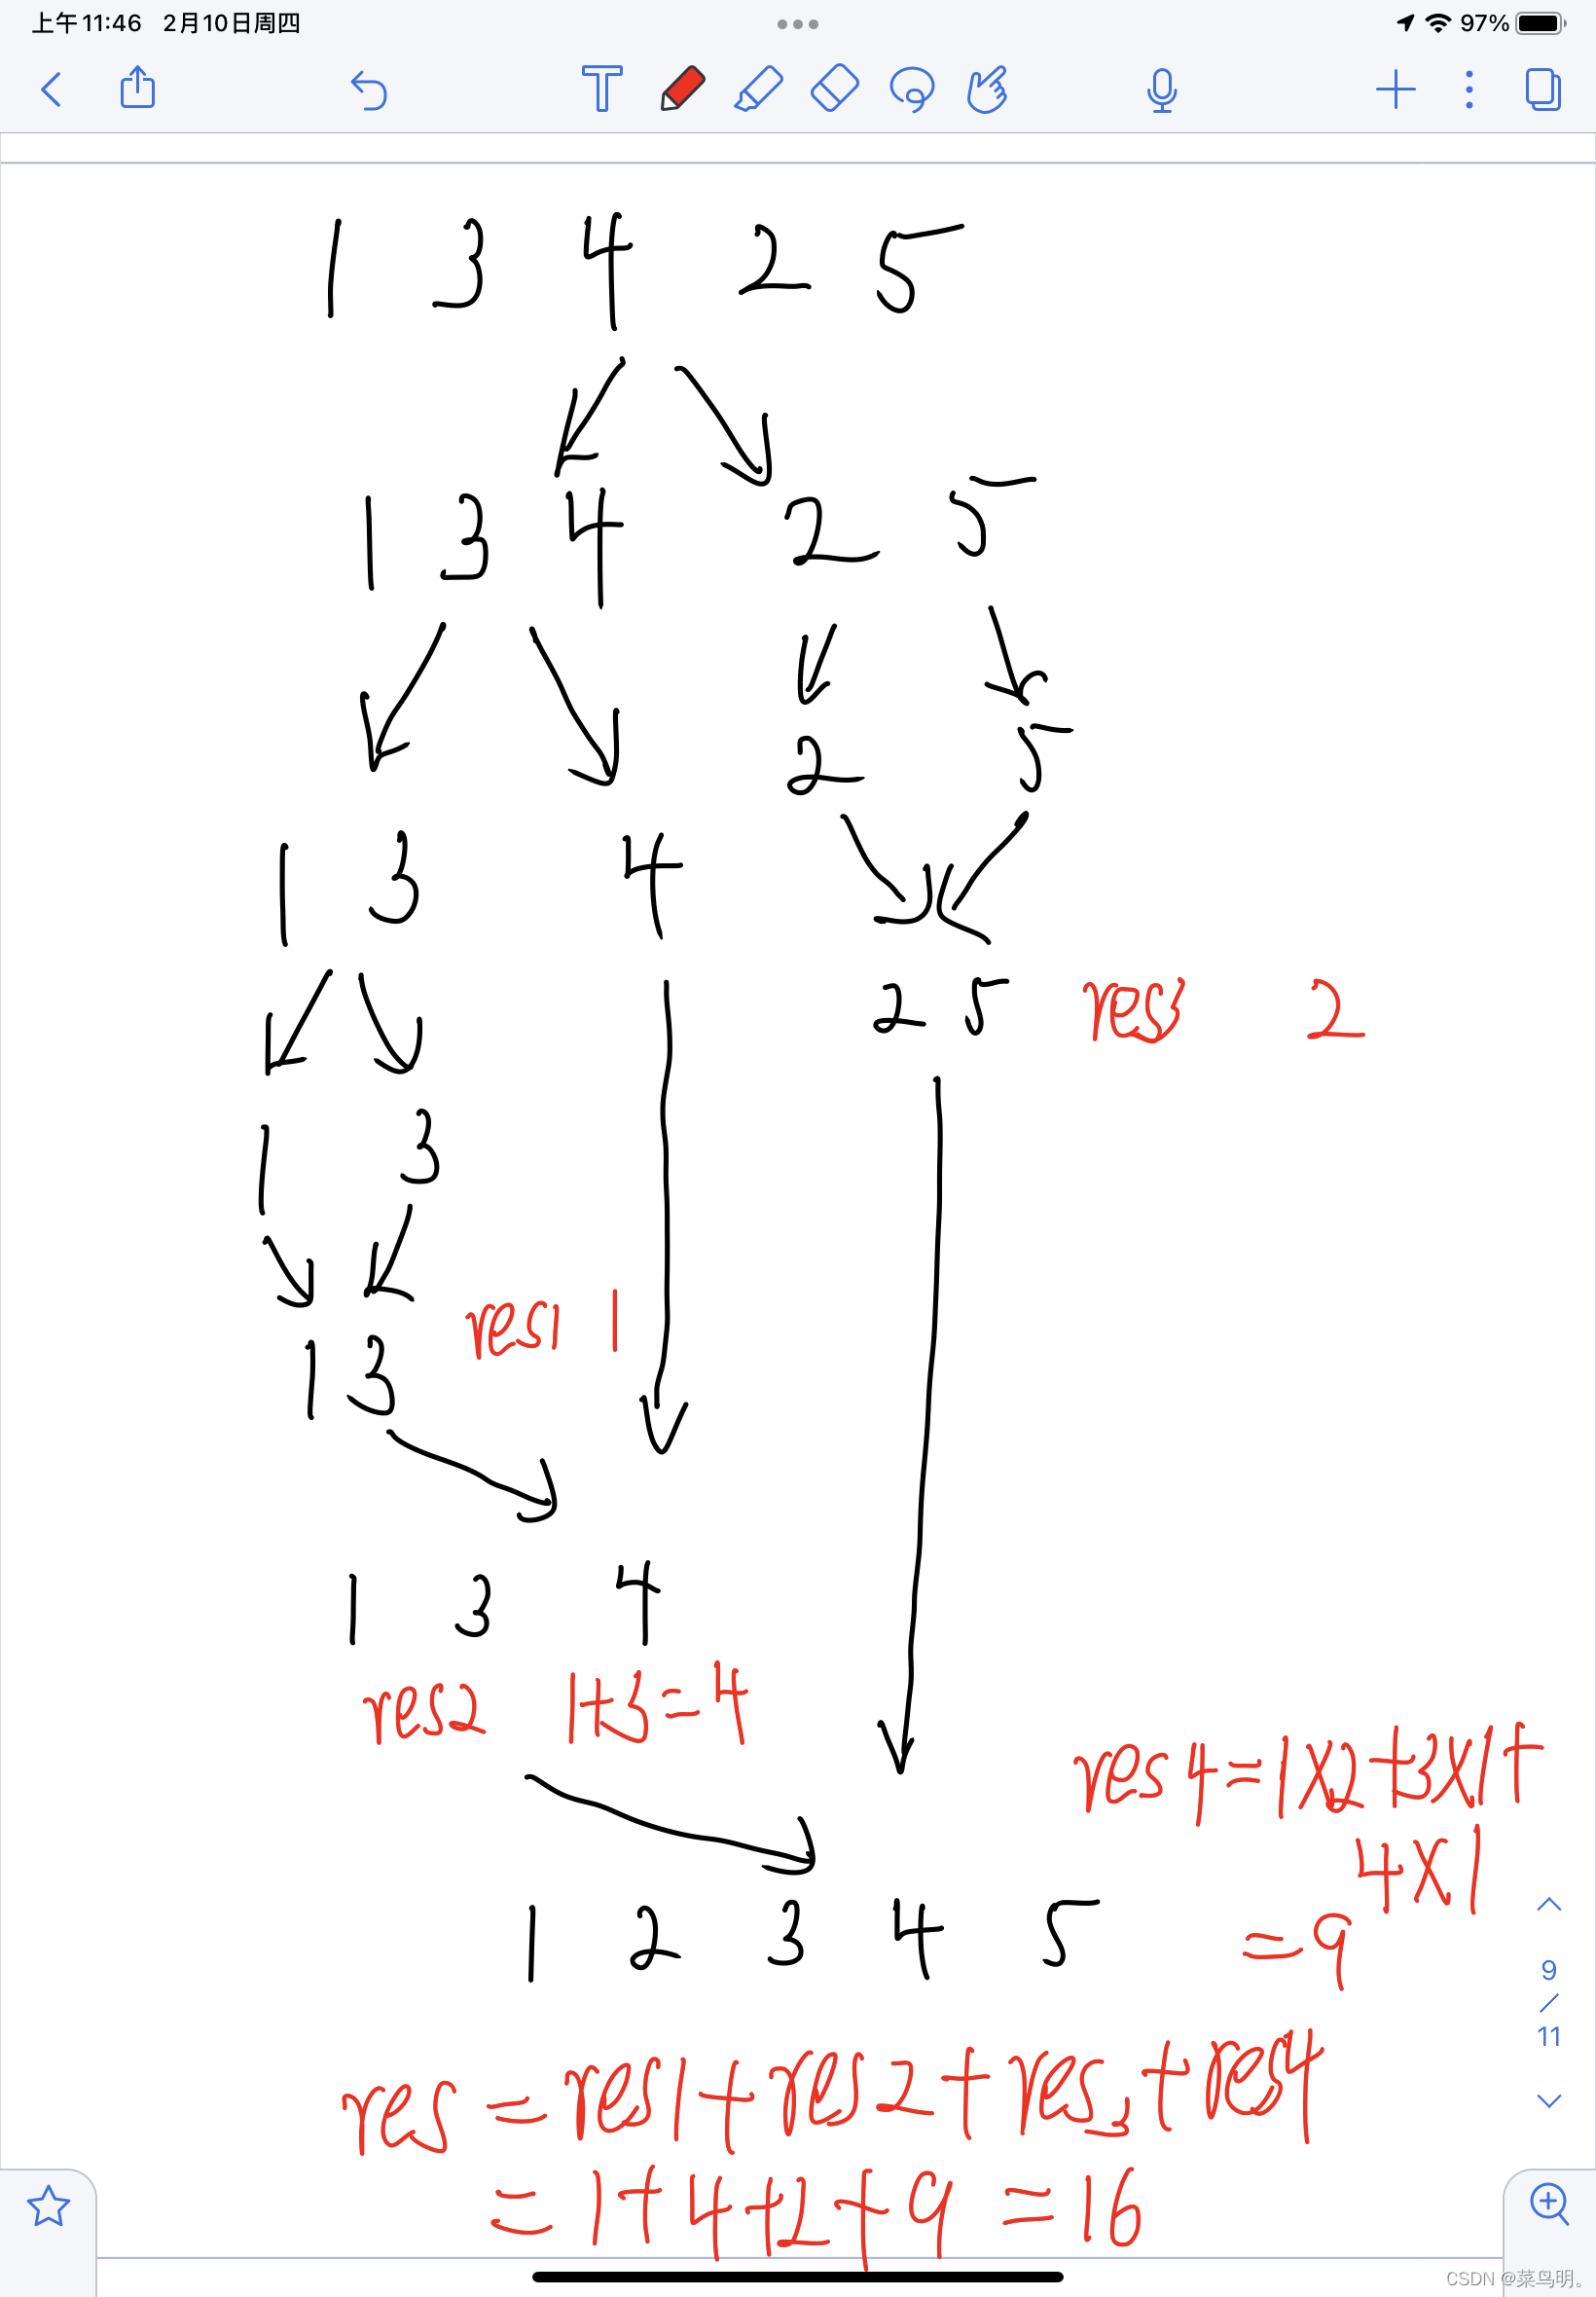 上午11:46 2月10日周四
97%
1 3 4 2 5
1 3 4 2 5
2 5
1 3 4
2 5 res3 2
1 3
res1 1
1 3
1 3 4
res2 1+3=4
res4=1×2+3×1+
4×1
1 2 3 4 5 =9
9
/
11
res=res1+res2+res3+res4
=1+4+2+9=16
CSDN @菜鸟明。